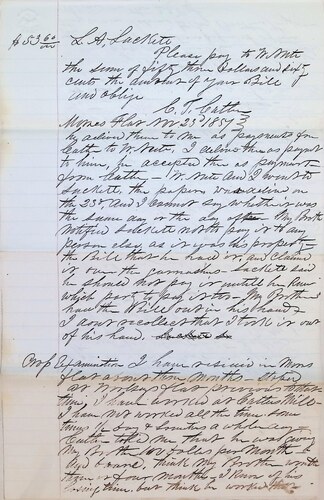 $53 60/100 L. A. Sackett
Please pay to W. Nute
the sum of fifty three Dollars and sixty
cents the amount of your Bill
and oblige
C. T. Cath
Mores Flat Nov 23d 1857
by deliver them to me as payments from
Cath to W. Nute, I deliver the as payment
to him, he accepted them as payment
from Cath - W. Nute and I went to
Sackett, the papers was deliver on
the 23d and I cannot say whether it was
the same day or the day after My Broth
notified Sackett not to pay it to any
person else as it was his property -
the Bill that he had it and claim
it over the garnashee - Sackett said
he should not pay it untill he knew
which party to pay it to - My Brother
have the Bill out in his hand &
I dont recollect that I took it out
of his hand.
Crosp Examination I have resided in Mores
Flat about three Months
at Mores Flat
time, I have worked at Mill
I have not worked all the time some
times 1/2 day & somtimes a whole day -
told me that he was giving
my Broth 100 Dollars per month &
board, think my Brother work
three or four months,
time, but think he worked